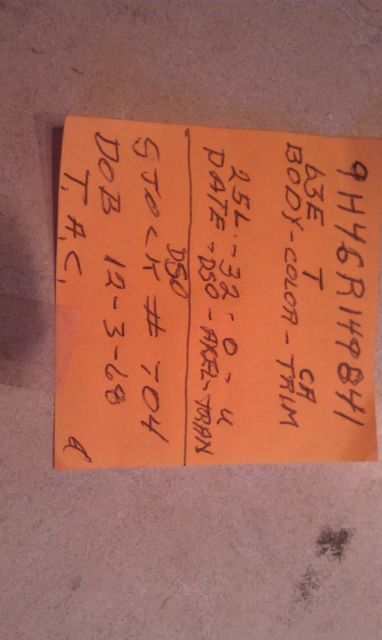 9H46R149841
63E T CA
BODY-COLOR-TRIM
25L-32-0-U
DATE-DSO-AXEL-TRAN
DSO
STOCK # 704
DOB 12-3-68
T.A.C.